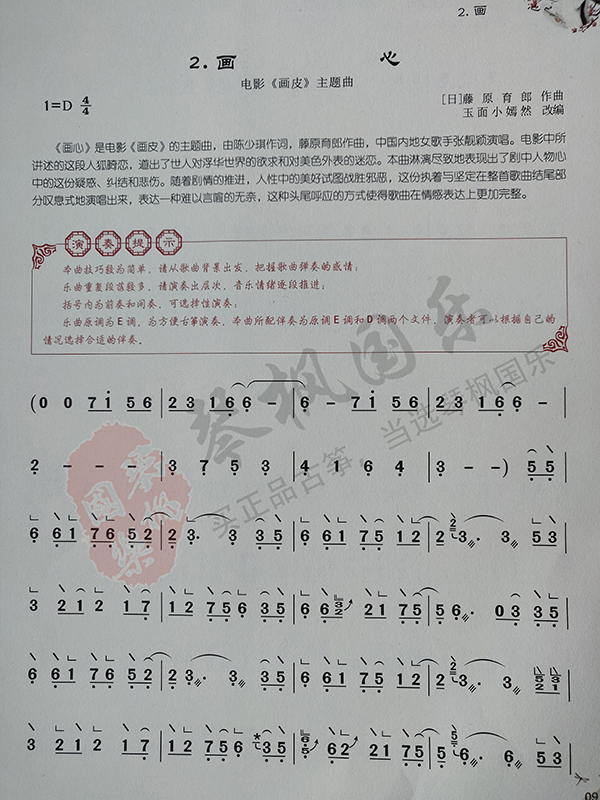 2. 画
2. 画 心
电影《画皮》主题曲
1=D 4/4
[日]藤 原 育 郎 作曲
玉 面 小 嫣 然 改编
《画心》是电影《画皮》的主题曲，由陈少琪作词，藤原育郎作曲，中国内地女歌手张靓颖演唱。电影中所
讲述的这段人狐畸恋，道出了世人对浮华世界的欲求和对美色外表的迷恋。本曲淋漓尽致地表现出了剧中人物心
中的这份疑惑、纠结和悲伤。随着剧情的推进，人性中的美好试图战胜邪恶，这份执着与坚定在整首歌曲结尾部
分叹息式地演唱出来，表达一种难以言喻的无奈，这种头尾呼应的方式使得歌曲在情感表达上更加完整。
演 奏 提 示
本曲技巧较为简单，请从歌曲背景出发，把握歌曲弹奏的感情；
乐曲重复段落较多，请演奏出层次，音乐情绪逐段推进；
括号内为前奏和间奏，可选择性演奏；
乐曲原调为E调，为方便古筝演奏，本曲所配伴奏为原调E调和D调两个文件，演奏者可以根据自己的
情况选择合适的伴奏。
琴枫国乐
买正品古筝，当选琴枫国乐
(0 0 7i 56 | 23 166 - | 6 7i 56 | 23 166 -
2 - - - | 3 7 5 3 | 4 1 6 4 | 3 - -) 55
6 61 76 52 | 23. 3 35 | 6 61 76 52 | 3 35
3 212 17 | 123 76 35 | 6 61 2175 | 56. 03 35
6 61 76 52 | 23. 3 35 | 6 61 76 52 | 23. 3
3 212 17 | 123 76 35 | 62 2175 | 6 - - -
09